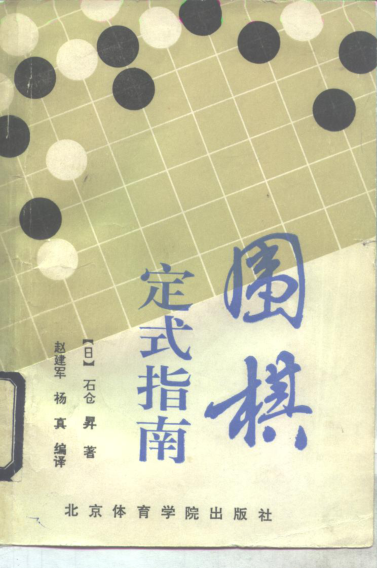 围棋
定式指南
【日】石仓 昇 著
赵建军 杨 真 编译
北京体育学院出版社